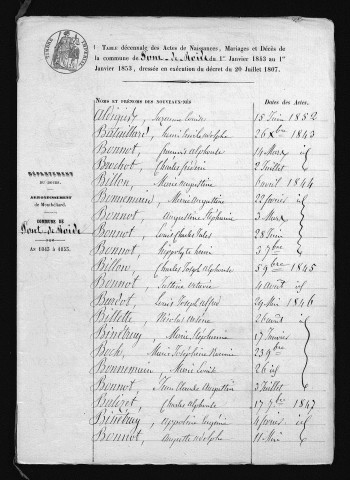 TABLE décennale des Actes de Naissances, Mariages et Décès de
la commune de Pont-de-Roide du 1er Janvier 1843 au 1er
Janvier 1853, dressée en exécution du décret du 20 Juillet 1807.
DÉPARTEMENT
DU DOUBS.
ARRONDISSEMENT
de Montbéliard.
COMMUNE DE
Pont-de-Roide
An 1843 à 1853.
NOMS ET PRÉNOMS DES NOUVEAUX-NÉS
Dates des Actes.
15 Juin 1852
26 Xbre 1843
Bonnot, françois alphonse 14 Mars id
Bourbot, Charles frédéric 2 Juillet
Billon, Marie augustine avril 1844
Bonnemain, Marie augustine 22 février id
Bonnot, Augustine Stéphanie 3 Mars
Bonnot, Louis Charles Jules 28
Bonnot, Hippolyte 3 7bre
Billon, Charles Joseph Alphonse 5 9bre 1845
Bonnot, Justine 4 avril id
Burdot, Louis Joseph Alfred 24 Mai 1846
Billotte, Nicolas 26 août id
Bénétruy, Marie Stéphanie 17 Janvier
Marie Joséphine 23
Bonnemain, Marie Louise 26 id
Bonnot, Jean Claude Augustin 3 Juillet
Charles alphonse 17 1847
Bénétruy, Appoline Virginie 4 février id
Bonnot, Auguste adolphe 11 Mai